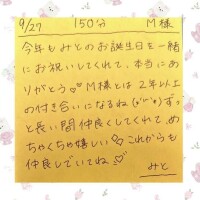 9/27 150分 M様
今年もみとのお誕生日を一緒
にお祝いしてくれて、本当にあ
りがとう♡M様とは2年以上
の付き合いになるね(⁎˃ᴗ˂⁎)ずっ
と長い間仲良くしてくれて、め
ちゃくちゃ嬉しい💕これからも
仲良しでいてね♡
みと